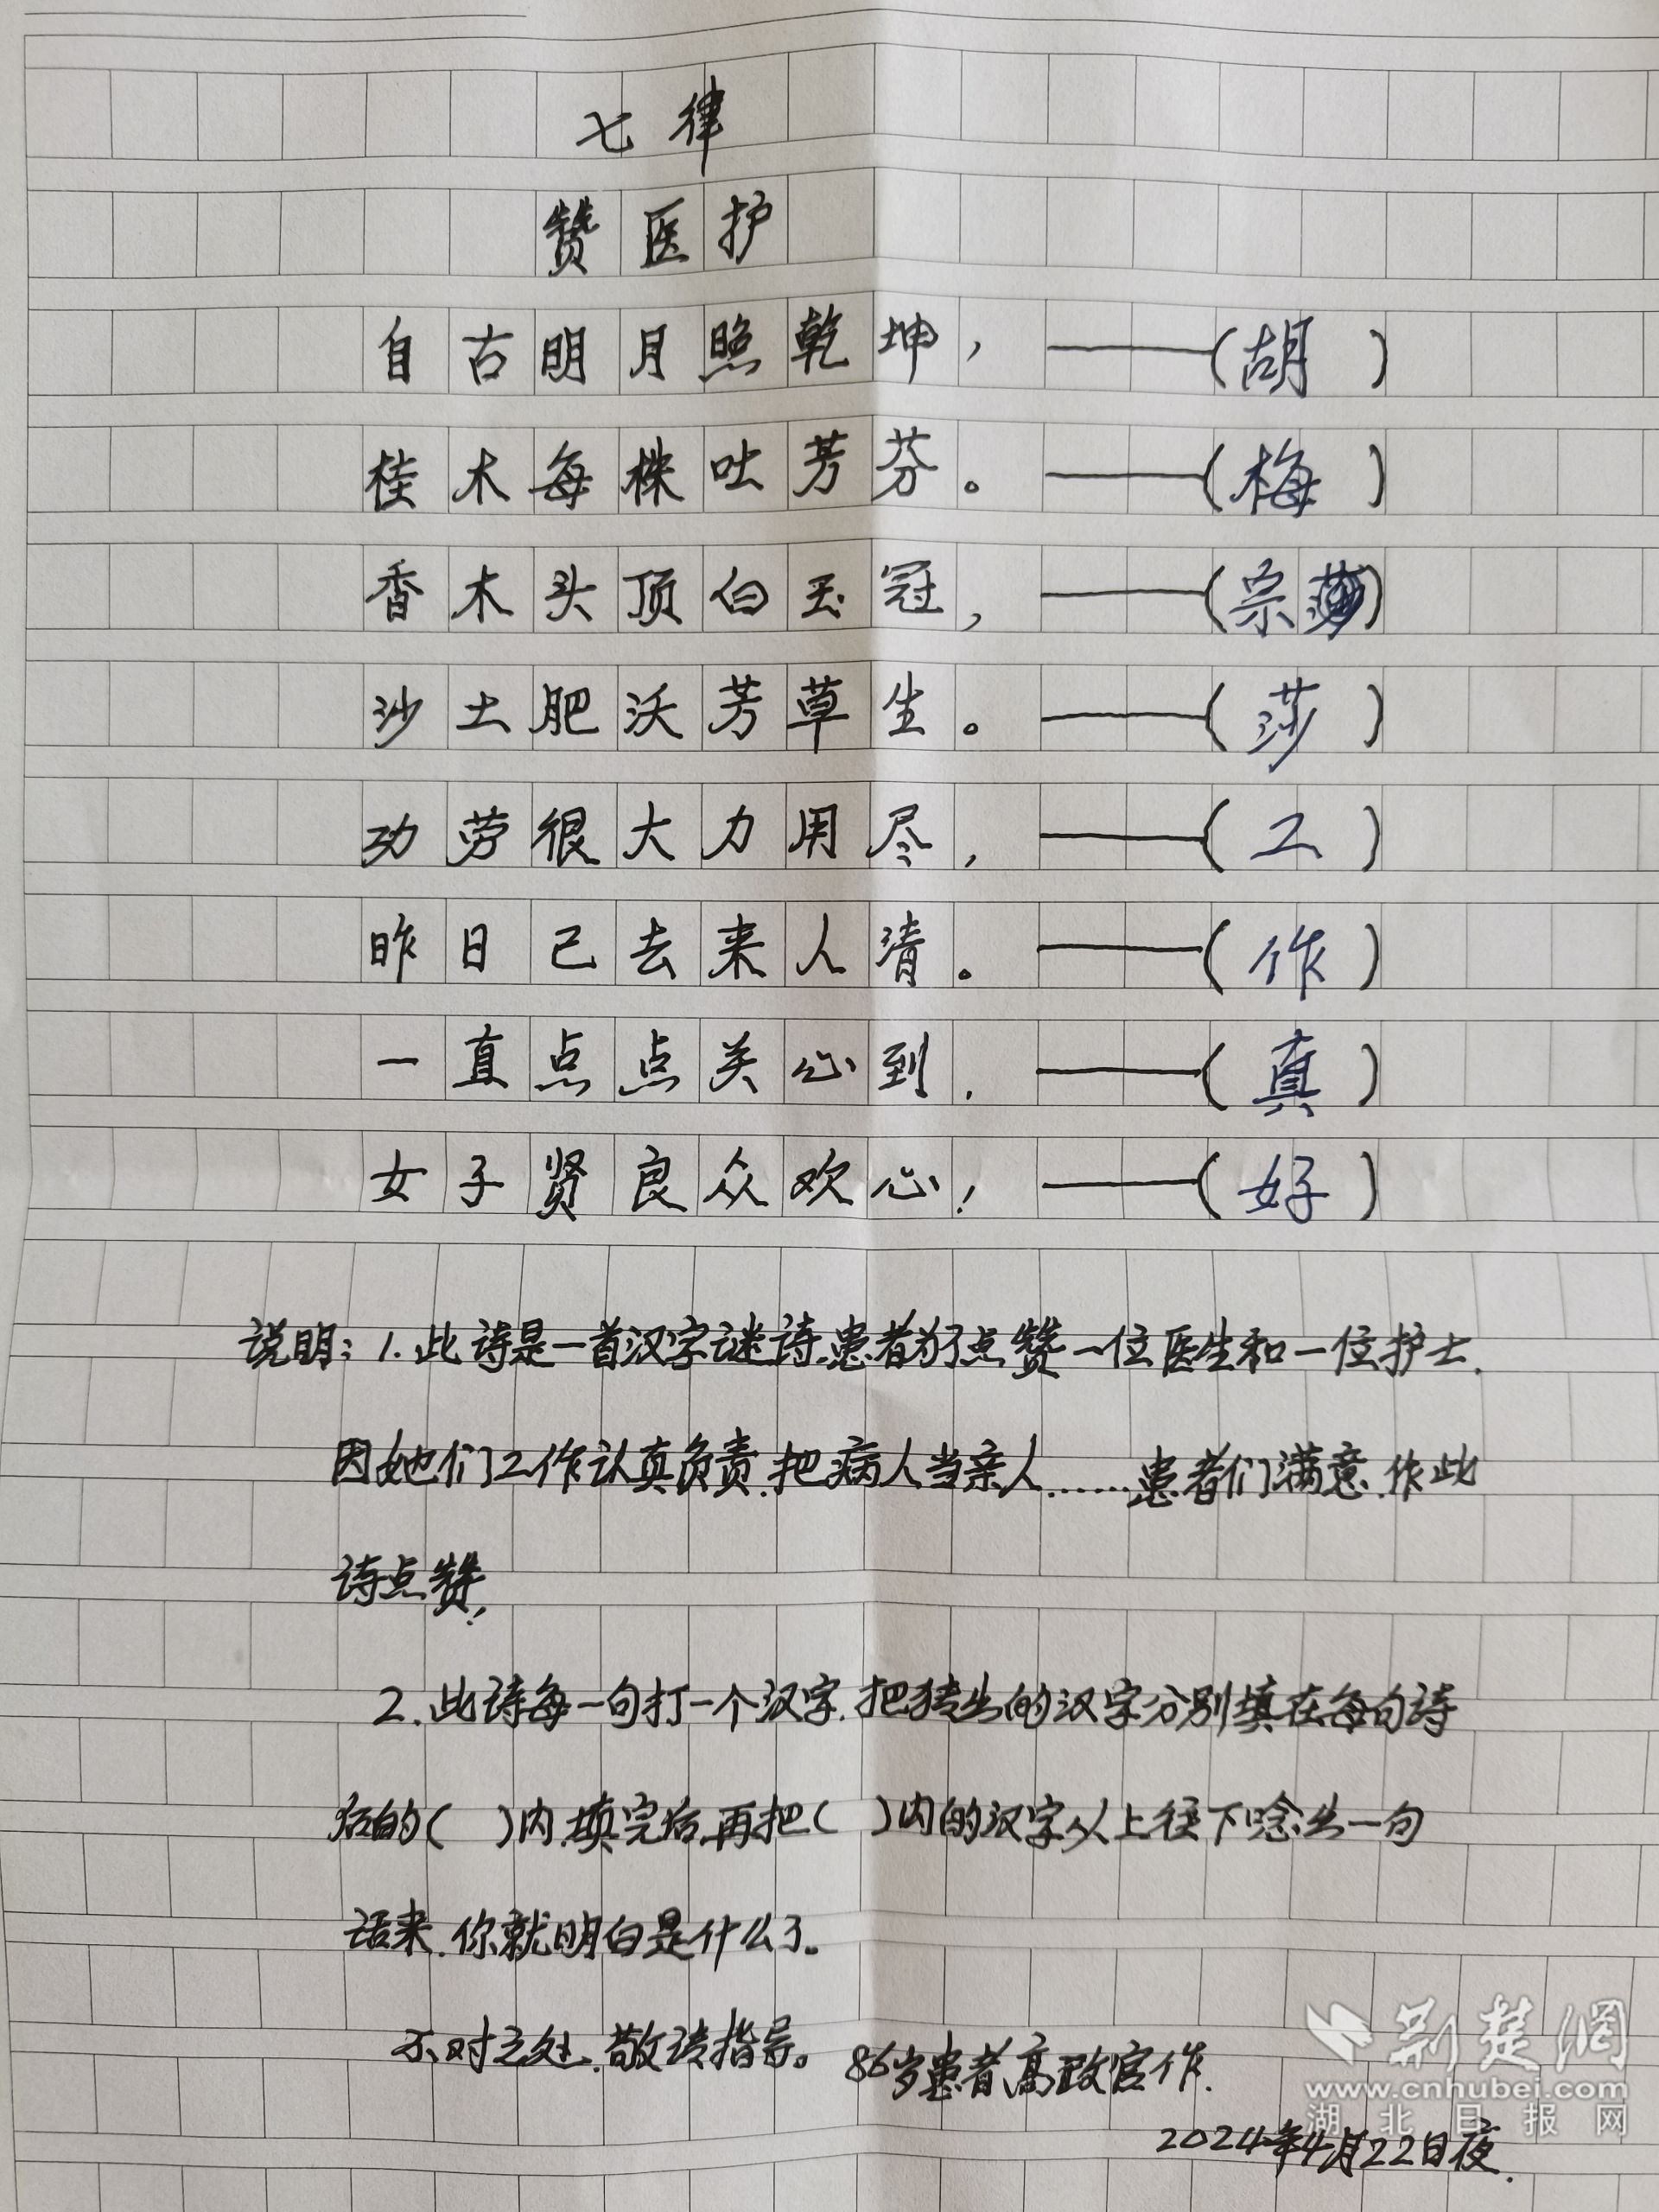 七律
赞医护
自古明月照乾坤，——(胡)
桂木每株吐芳芬。——(梅)
香木头顶白玉冠，——(宗)
沙土肥沃芳草生。——(莎)
功劳很大力用尽，——(工)
昨日已去来人清。——(作)
一直点点关心到，——(真)
女子贤良众欢心！——(好)
说明：1.此诗是一首汉字谜诗.患者为了点赞一位医生和一位护士.
因她们工作认真负责.把病人当亲人……患者们满意.作此
诗点赞！
2.此诗每一句打一个汉字.把猜出的汉字分别填在每句诗
后的( )内.填完后.再把( )内的汉字从上往下念出一句
话来.你就明白是什么了。
不对之处.敬请指导。86岁患者高政官作.
2024年4月22日夜.
荆楚网
www.cnhubei.com
湖北日报网